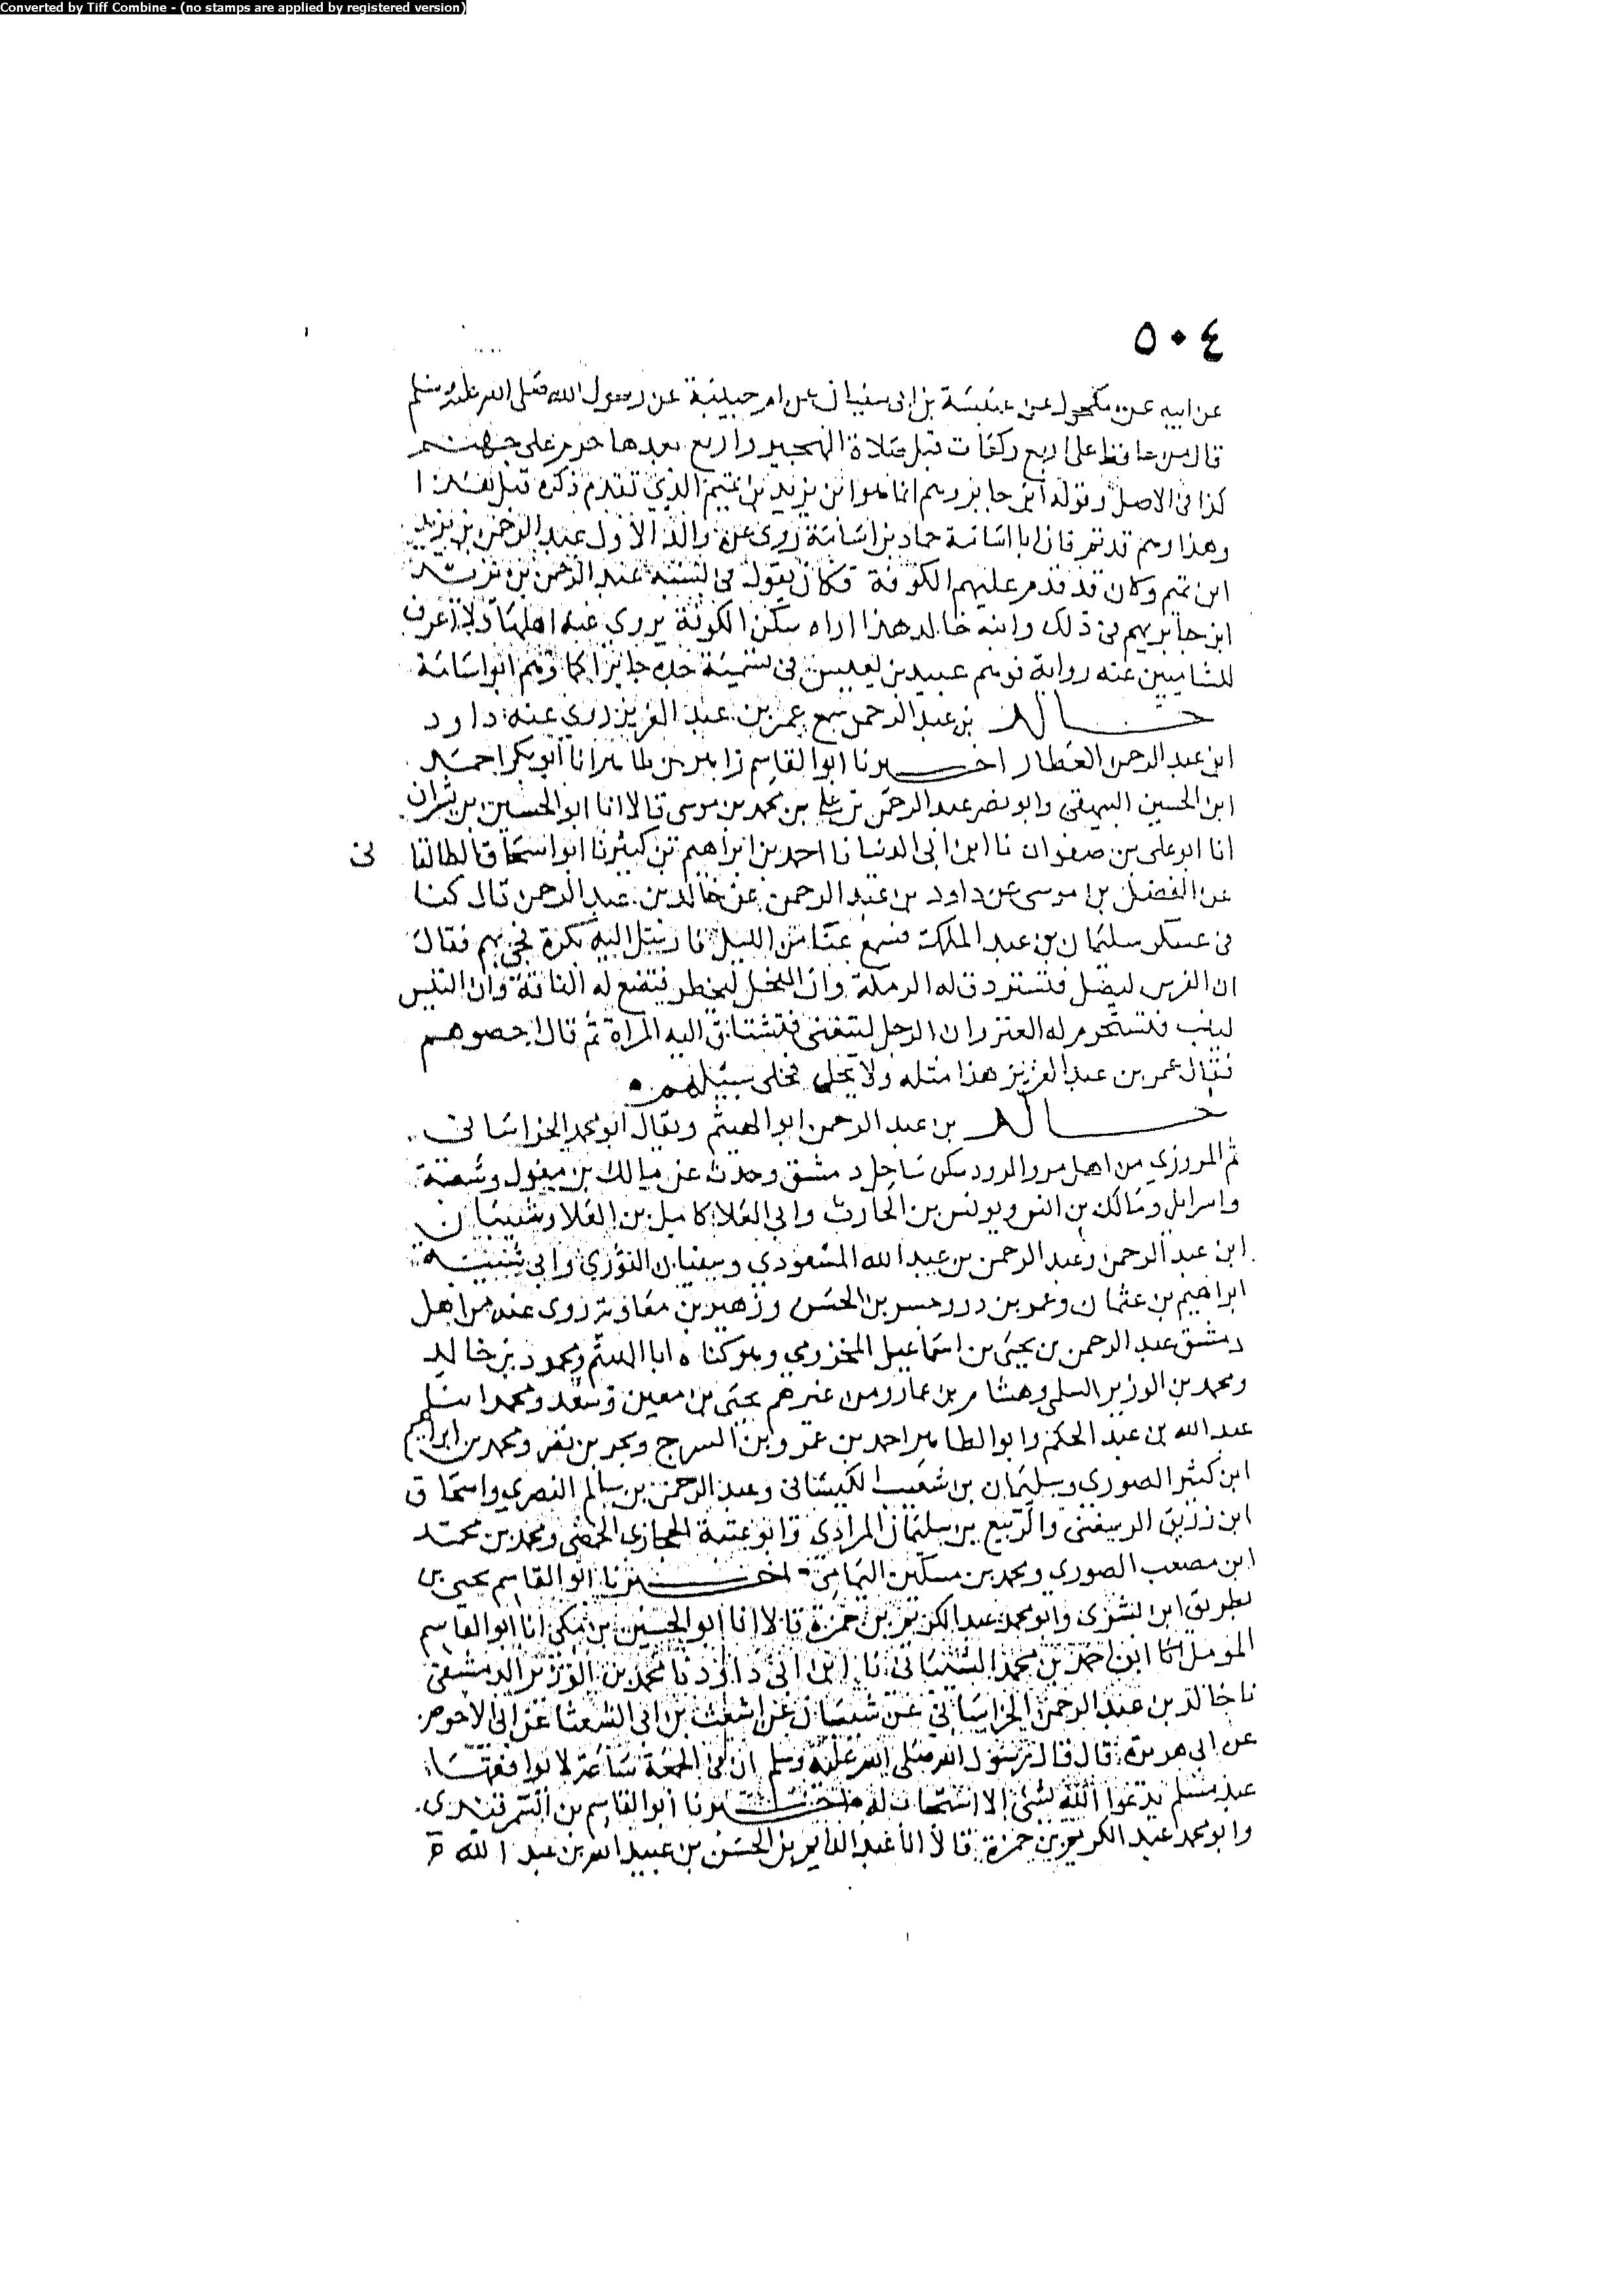 Converted by Tiff Combine - (no stamps are applied by registered version)
٥٠٤
عن ابيه عن مكحول عن عنبسة بن ابى سفيان عن ام حبيبة عن رسول الله صلى الله عليه وسلم
قال من حافظ على اربع ركعات قبل صلاة الهجير واربع بعدها حرم على جهنم
كذا فى الاصل وقوله ابن جابر وهم انما هو ابن يزيد بن تميم الذي تقدم ذكره قبل هذا
وهذا وهم قديم فان ابا اسامة حماد بن اسامة روى عن والد الاول عبد الرحمن بن يزيد
ابن تميم وكان قد قدم عليهم الكوفة فكان يقول فى نسبه عبد الرحمن بن يزيد
ابن جابر يهم فى ذلك وابنه خالد هذا اراه سكن الكوفة يروي عنه اهلها ولا اعرف
للشاميين عنه رواية فوهم عبيد بن يعيش فى تسمية جده جابرا كما وهم ابو اسامة
خالد بن عبد الرحمن سمع عمر بن عبد العزيز روي عنه داود
ابن عبد الرحمن العطار اخبرنا ابو القاسم زاهر بن طاهر انا ابو بكر احمد
ابن الحسين البيهقى وابو نصر عبد الرحمن بن على بن محمد بن موسى قالا انا ابو الحسين بن بشران
انا ابو على بن صفوان نا ابن ابى الدنيا نا احمد بن ابراهيم بن كثير نا ابو اسحاق الطالقا نى
عن الفضل بن موسى عن داود بن عبد الرحمن عن خالد بن عبد الرحمن قال كنا
فى عسكر سليمان بن عبد الملك فسمع غنا من الليل فارسل اليه بكرة فجى بهم فقال
ان الفرس ليصهل فتستودق له الرمكة وان الفحل ليخطر فتضع له الناقة وان التيس
لينب فتستحرم له العنز وان الرجل ليتغنى فتشتاق اليه المراة ثم قال اخصوهم
فقال عمر بن عبد العزيز هذا مثله ولا تحل فخلى سبيلهم
خالد بن عبد الرحمن ابو الهيثم ويقال ابو محمد الخراسانى
ثم المروزي من اهل مرو الروذ سكن ساحل دمشق وحدث عن مالك بن مغول وشعبة
واسرايل ومالك بن انس ويونس بن الحارث وابى العلا كامل بن العلا وشيبان
ابن عبد الرحمن وعبد الرحمن بن عبد الله المسعودي وسفيان الثوري وابى شيبة
ابراهيم بن عثمان وعمر بن ذر وحسر بن الحسن وزهير بن معاوية روى عنه من اهل
دمشق عبد الرحمن بن يحيى بن اسماعيل المخزومي وهو كناه ابا الهيثم ومحمود بن خالد
ومحمد بن الوزير السلمى وهشام بن عمار ومن غيرهم يحيى بن معين وسعد ومحمد ابنا
عبد الله بن عبد الحكم وابو الطاهر احمد بن عمرو ابن السرح وبحر بن نصر ومحمد بن ابراهيم
ابن كثير الصوري وسليمان بن شعيب الكيسانى وعبد الرحمن بن سالم النصري واسحاق
ابن زريق الرسعنى والربيع بن سليمان المرادي وابو عتبة الحجازي الحمصى ومحمد بن محمد
ابن مصعب الصوري ومحمد بن مسكين اليمامي اخبرنا ابو القاسم يحيى بن
بطريق ابن بشرى وابو محمد عبد الكريم بن حمزة قالا انا ابو الحسين بن مكى انا ابو القاسم
المومل انا ابن احمد بن محمد الشيبانى نا ابن ابى داود نا محمد بن الوزير الدمشقى
نا خالد بن عبد الرحمن الخراسانى عن شيبان عن اشعث بن ابى الشعثا عن ابى الاحوص
عن ابى هريرة قال قال رسول الله صلى الله عليه وسلم ان فى الجمعة ساعة لا يوافقها
عبد مسلم يدعوا الله بشئ الا استجاب له اخبرنا ابو القاسم بن السمرقندى
وابو محمد عبد الكريم بن حمزة قالا انا عبد الدايم بن الحسن بن عبيد الله بن عبد الله ح